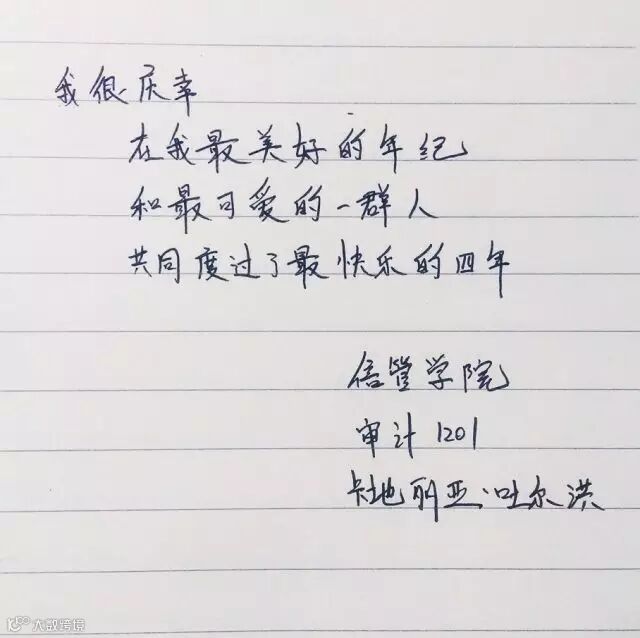 我很庆幸
在我最美好的年纪
和最可爱的一群人
共同度过了最快乐的四年
信管学院
审计1201
卡地丽亚·吐尔洪
大数跨境